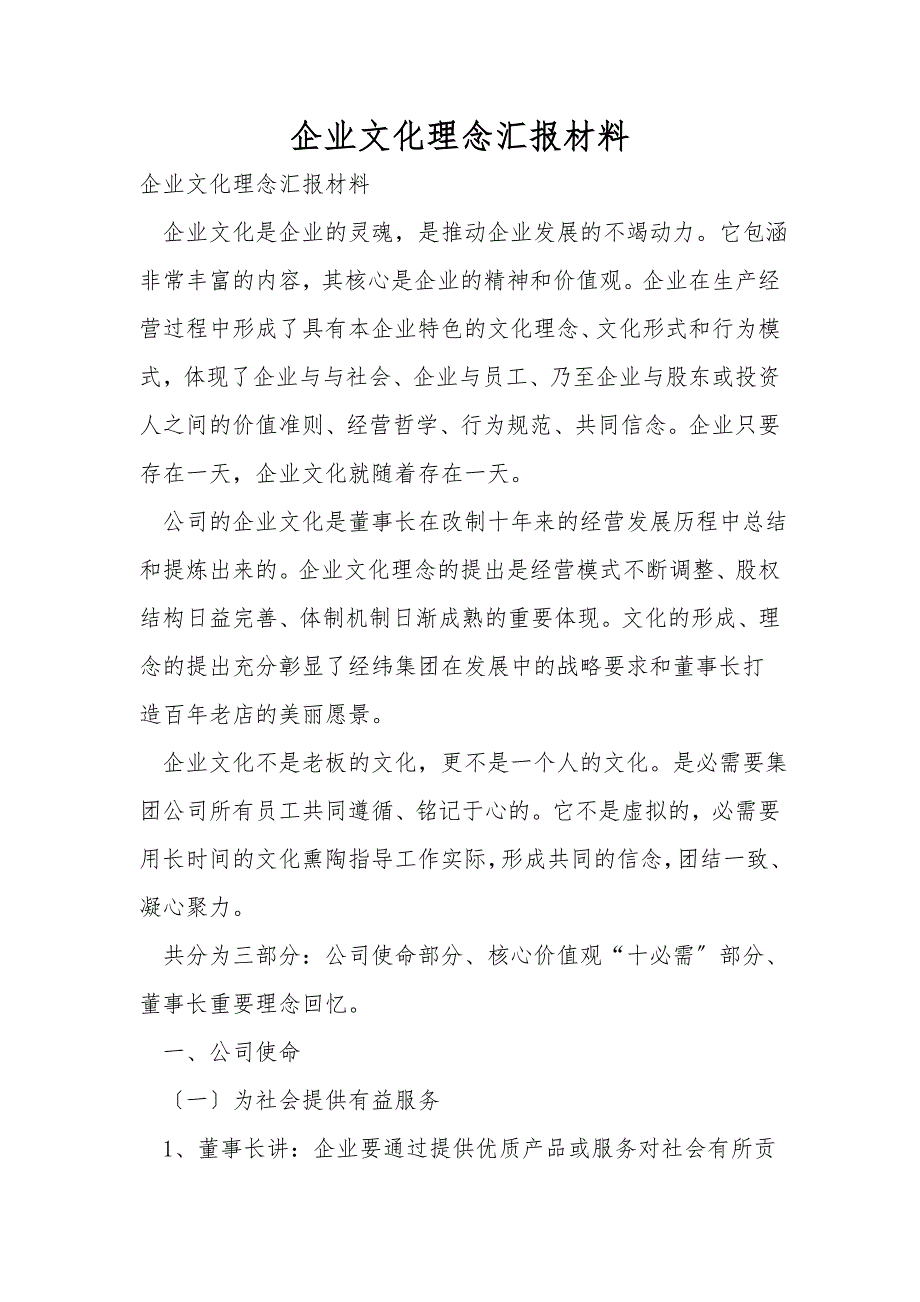 企业文化理念汇报材料
企业文化理念汇报材料
企业文化是企业的灵魂，是推动企业发展的不竭动力。它包涵
非常丰富的内容，其核心是企业的精神和价值观。企业在生产经
营过程中形成了具有本企业特色的文化理念、文化形式和行为模
式，体现了企业与与社会、企业与员工、乃至企业与股东或投资
人之间的价值准则、经营哲学、行为规范、共同信念。企业只要
存在一天，企业文化就随着存在一天。
公司的企业文化是董事长在改制十年来的经营发展历程中总结
和提炼出来的。企业文化理念的提出是经营模式不断调整、股权
结构日益完善、体制机制日渐成熟的重要体现。文化的形成、理
念的提出充分彰显了经纬集团在发展中的战略要求和董事长打
造百年老店的美丽愿景。
企业文化不是老板的文化，更不是一个人的文化。是必需要集
团公司所有员工共同遵循、铭记于心的。它不是虚拟的，必需要
用长时间的文化熏陶指导工作实际，形成共同的信念，团结一致、
凝心聚力。
共分为三部分：公司使命部分、核心价值观“十必需〞部分、
董事长重要理念回忆。
一、公司使命
〔一〕为社会提供有益服务
1、董事长讲：企业要通过提供优质产品或服务对社会有所贡